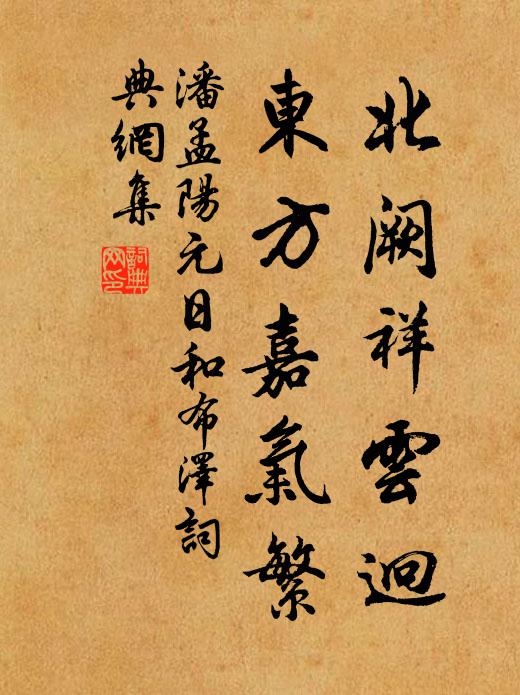 北闕祥雲迥
東方嘉氣繁
潘孟陽元日和布澤詞
典網集
詞典網印